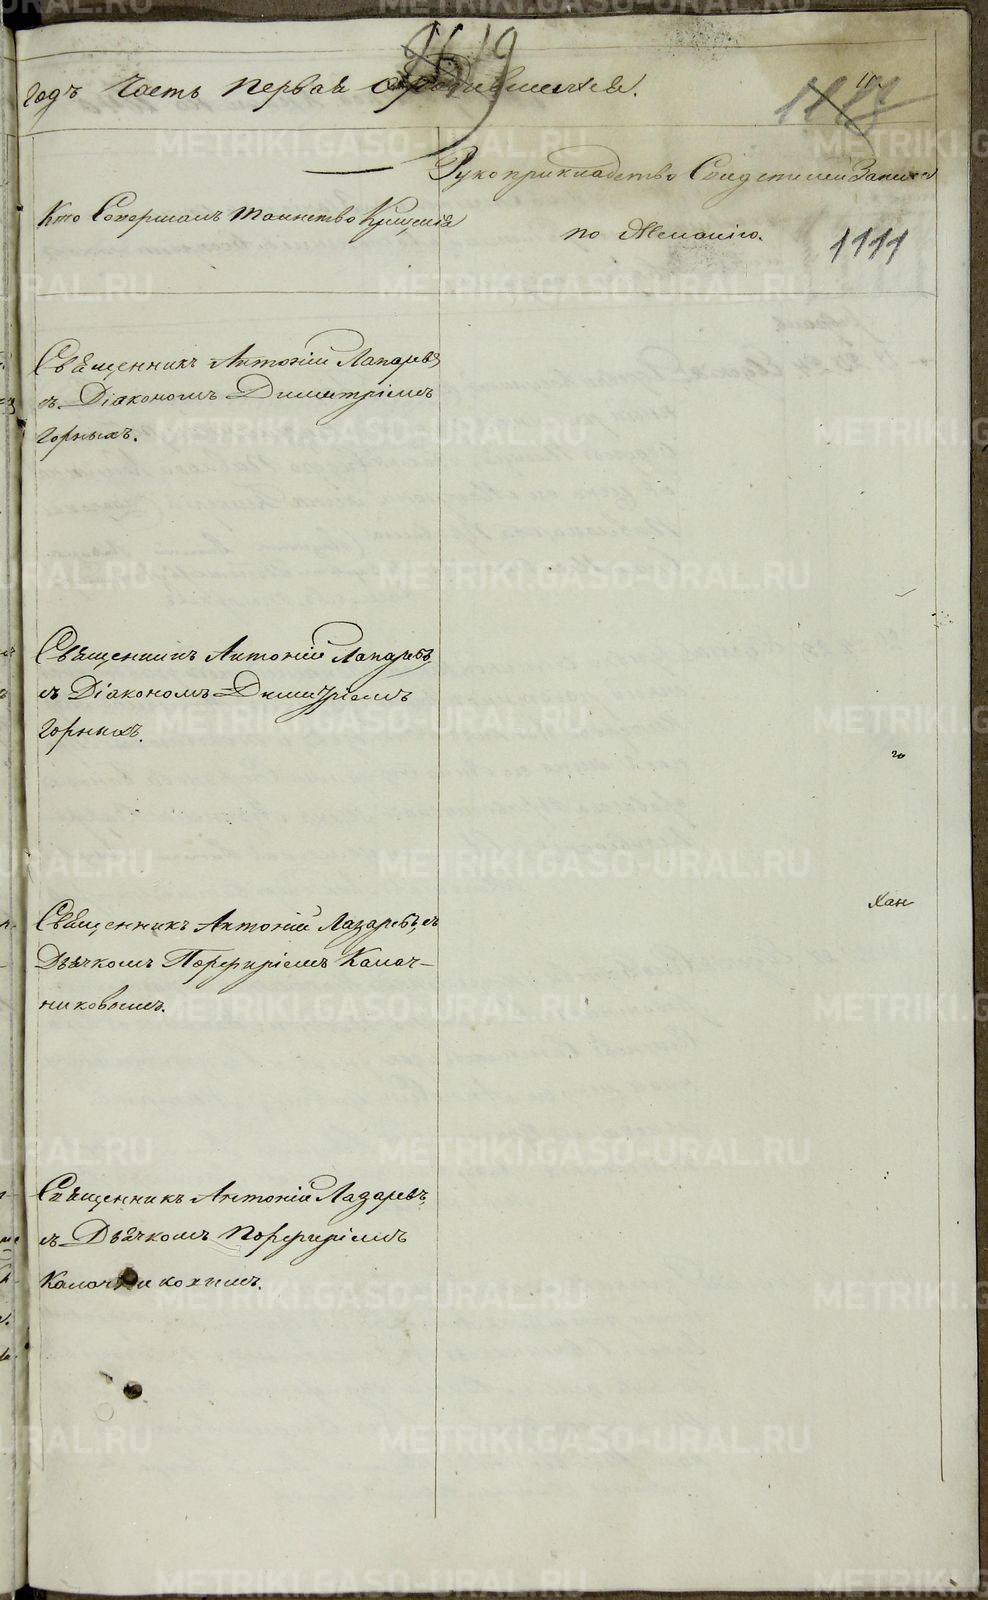 годъ Часть первая о родившихся.
Рукоприкладство Свидетелей Записи
по Желанію.
1111
Кто Совершалъ таинство Крещенія
Священникъ Антоній Лазаревъ
съ Діакономъ Димитріемъ
Горныхъ.
Священникъ Антоній Лазаревъ
съ Діакономъ Димитріемъ
Горныхъ.
Священникъ Антоній Лазаревъ, съ
Дьячкомъ Порфиріемъ Калач-
никовымъ.
Священникъ Антоній Лазаревъ,
съ Дьячкомъ Порфиріемъ
METRIKI.GASO-URAL.RU